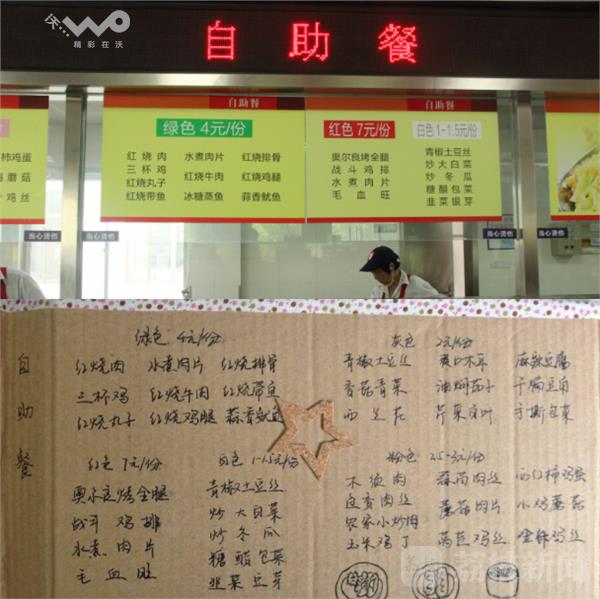 沃
WO
精彩在沃
自助餐
自助餐
自助餐
柿鸡蛋
海蘑菇
鸡丝
绿色 4元/份
红烧肉 水煮肉片 红烧排骨
三杯鸡
红烧丸子 红烧牛肉 红烧鸡腿
红烧带鱼 冰糖蒸鱼 蒜香鱿鱼
红色 7元/份
奥尔良烤全腿
战斗鸡排
水煮肉片
毛血旺
白色 1-1.5元/份
青椒土豆丝
炒大白菜
炒冬瓜
糖醋包菜
韭菜银芽
当心烫伤
当心烫伤
当心烫伤
当心烫伤
自助餐
绿色 4元/份
红烧肉 水煮肉片 红烧排骨
三杯鸡 红烧牛肉 红烧带鱼
红烧丸子 红烧鸡腿 蒜香鱿鱼
灰色 2元/份
青椒土豆丝 爽口木耳 麻辣豆腐
香菇青菜 油焖茄子 干煸豆角
西兰花 芹菜百叶 手撕包菜
红色 7元/份
奥尔良烤全腿
战斗鸡排
水煮肉片
毛血旺
白色 1-1.5元/份
青椒土豆丝
炒大白菜
炒冬瓜
糖醋包菜
韭菜豆芽
粉色 2.5-3元/份
木须肉 蒜苔肉丝 西红柿鸡蛋
鱼香肉丝 蘑菇肉片 小鸡蘑菇
农家小炒肉
玉米鸡丁 莴苣鸡丝 金针鸡丝
荔枝新闻